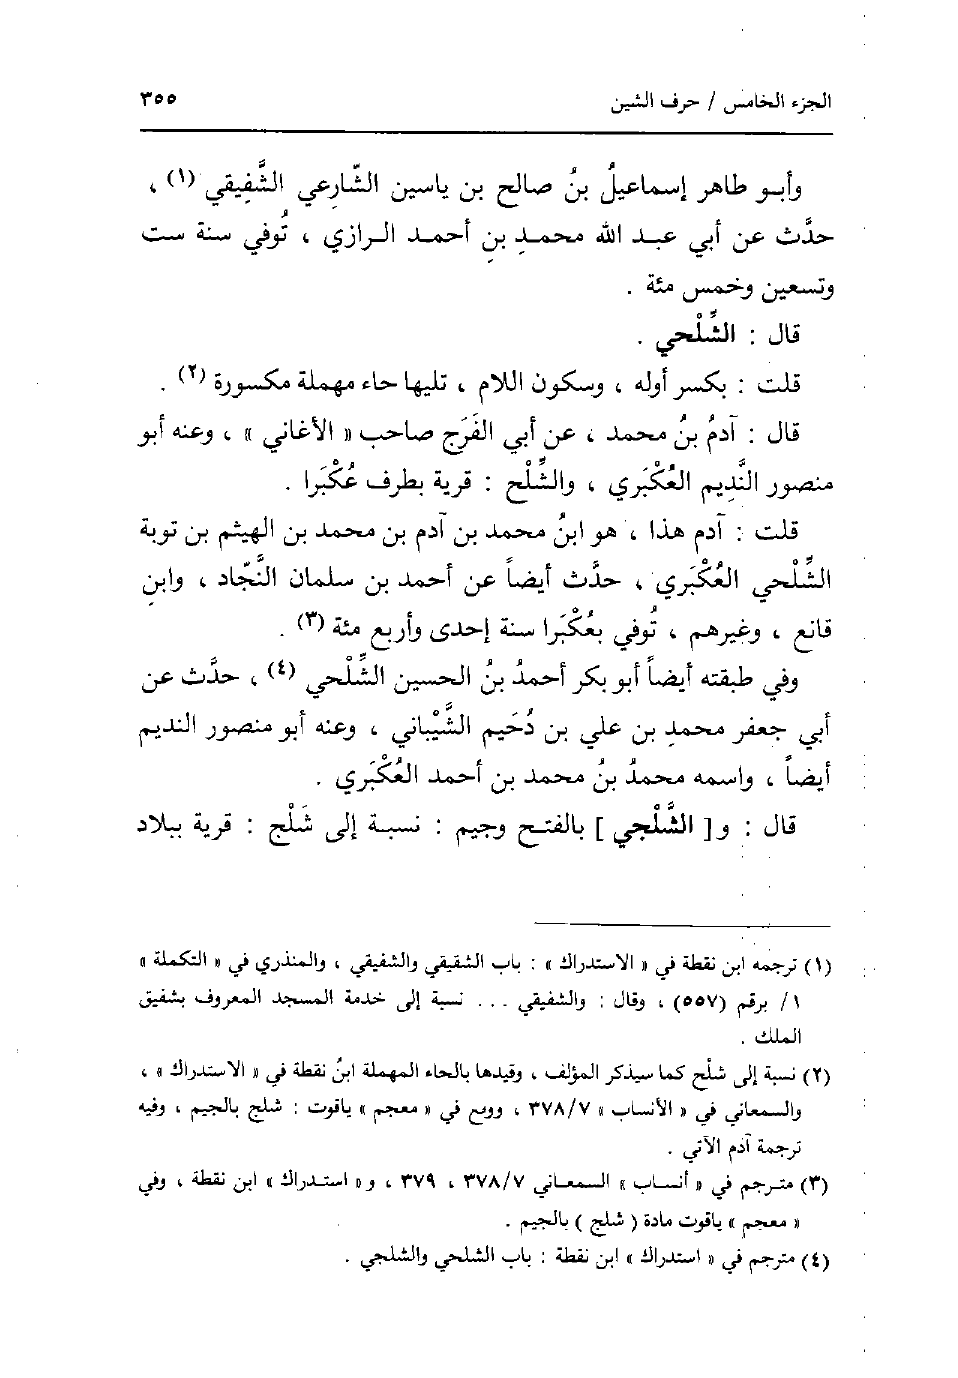 الجزء الخامس / حرف الشين ٣٥٥
وأبو طاهر إسماعيلُ بنُ صالح بن ياسين الشّارعي الشَّفِيقي (١) ،
حدَّث عن أبي عبد الله محمدِ بنِ أحمد الرازي ، تُوفي سنة ست
وتسعين وخمس مئة .
قال : الشِّلْحي .
قلت : بكسر أوله ، وسكون اللام ، تليها حاء مهملة مكسورة (٢) .
قال : آدمُ بنُ محمد ، عن أبي الفَرَج صاحب « الأغاني » ، وعنه أبو
منصور النَّدِيم العُكْبَري ، والشِّلْح : قرية بطرف عُكْبَرا .
قلت : آدم هذا ، هو ابنُ محمد بن آدم بن محمد بن الهيثم بن توبة
الشِّلْحي العُكْبَري ، حدَّث أيضاً عن أحمد بن سلمان النَّجّاد ، وابنِ
قانع ، وغيرهم ، تُوفي بعُكْبَرا سنة إحدى وأربع مئة (٣) .
وفي طبقته أيضاً أبو بكر أحمدُ بنُ الحسين الشِّلْحي (٤) ، حدَّث عن
أبي جعفر محمدِ بن علي بن دُحَيم الشَّيْباني ، وعنه أبو منصور النديم
أيضاً ، واسمه محمدُ بنُ محمد بن أحمد العُكْبَري .
قال : و[ الشَّلْجي ] بالفتح وجيم : نسبة إلى شَلْج : قرية ببلاد
(١) ترجمه ابن نقطة في « الاستدراك » : باب الشقيقي والشفيقي ، والمنذري في « التكملة »
١/ برقم (٥٥٧) ، وقال : والشفيقي ... نسبة إلى خدمة المسجد المعروف بشفيق
الملك .
(٢) نسبة إلى شلْح كما سيذكر المؤلف ، وقيدها بالحاء المهملة ابنُ نقطة في « الاستدراك » ،
والسمعاني في « الأنساب » ٣٧٨/٧ ، ووقع في « معجم » ياقوت : شلج بالجيم ، وفيه
ترجمة آدم الآتي .
(٣) مترجم في « أنساب » السمعاني ٣٧٨/٧ ، ٣٧٩ ، و« استدراك » ابن نقطة ، وفي
« معجم » ياقوت مادة ( شلج ) بالجيم .
(٤) مترجم في « استدراك » ابن نقطة : باب الشلحي والشلجي .